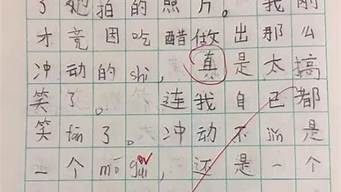 了她拍的照片。我刚
才竟因吃醋做出那么
冲动的shi,真是太搞
笑了。连我自己都
笑fān了。冲动不jǐn是
一个mó guǐ,还是一个